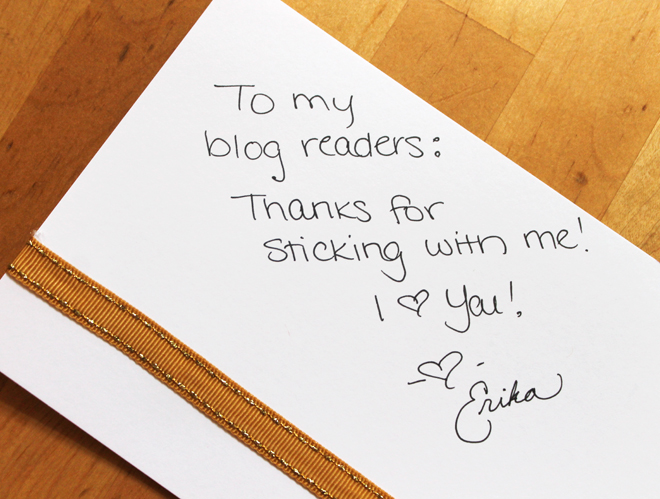 To my
blog readers:
Thanks for
sticking with me!
I ♡ You!
-♡-
Erika